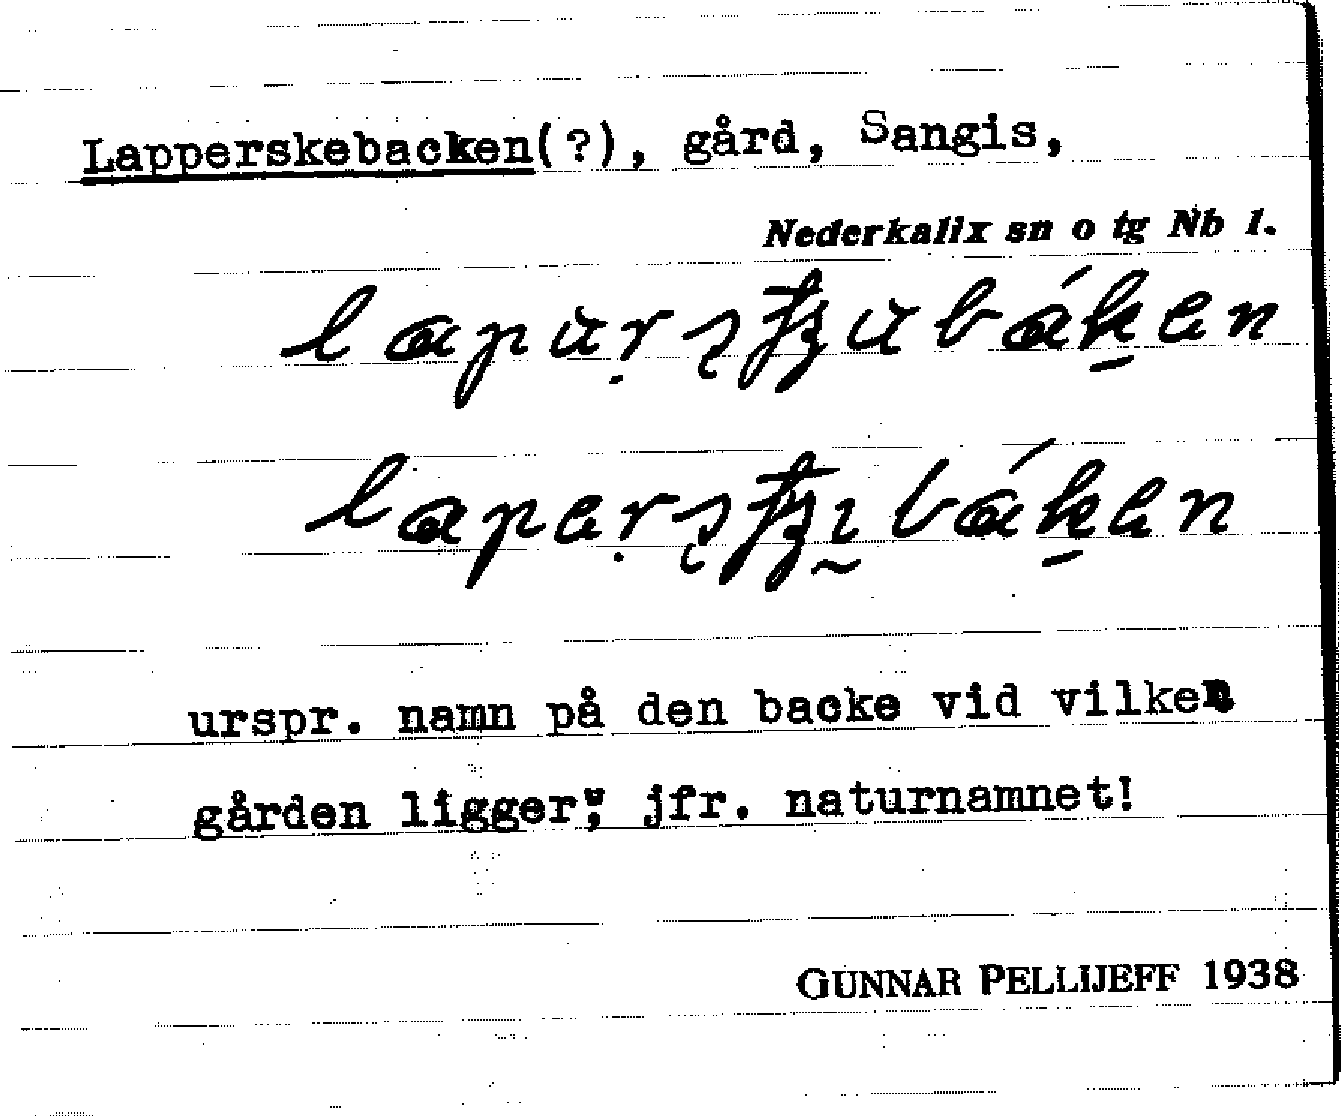 Lapperskebacken(?), gård, Sangis,
Nederkalix sn o tg Nb l.
urspr. namn på den backe vid vilken
gården ligger; jfr. naturnamnet!
GUNNAR PELLIJEFF 1938